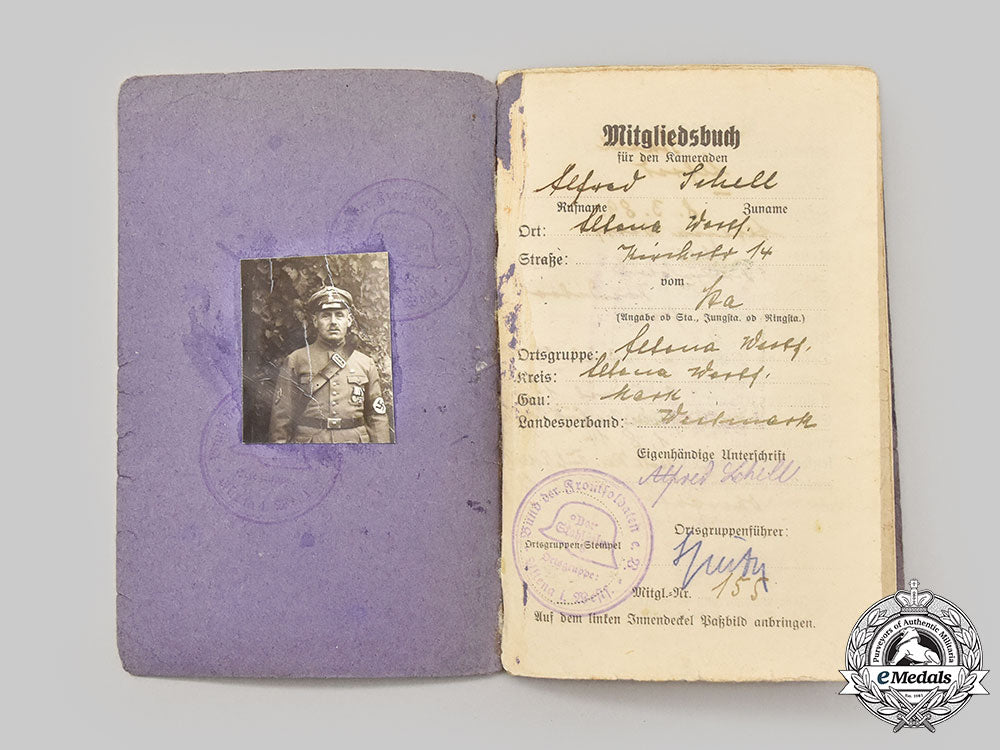 Mitgliedsbuch
für den Kameraden
Alfred Schell
Rufname Zuname
Ort: Altena Westf.
Straße: Kirchstr 14
vom
Sta
(Angabe ob Sta., Jungsta. od Ringsta.)
Ortsgruppe: Altena Westf.
Kreis: Altena Westf.
Gau: Mark
Landesverband: Westmark
Eigenhändige Unterschrift
Alfred Schell
Bund der Frontsoldaten e. V.
"Der Stahlhelm"
Ortsgruppe:
Altena i. Westf.
Ortsgruppen-Stempel
Ortsgruppenführer:
Mitgl.-Nr. 155
Auf dem linken Innendeckel Paßbild anbringen.
Purveyors of Authentic Militaria
eMedals